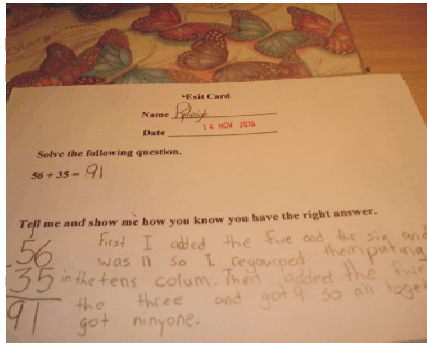 *Exit Card
Name Ryleigh
Date 16 NOV 2010
Solve the following question.
56 + 35 = 91
Tell me and show me how you know you have the right answer.
56
35
91
First I added the five and the six and
was 11 so I regourped them puting
in the tens colum. Then added the five
the three and got 9 so all toget
got ninyone.